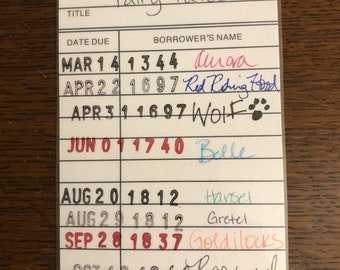 Fairy Tales
TITLE
DATE DUE BORROWER'S NAME
MAR 14 1344 Aurora
APR 22 1697 Red Riding Hood
APR 31 1697 WOLF
JUN 01 1740 Belle
AUG 20 1812 Hansel
AUG 29 1812 Gretel
SEP 28 1837 Goldilocks